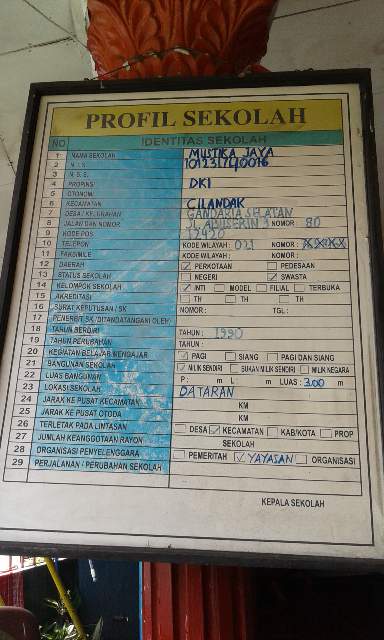 PROFIL SEKOLAH
NO IDENTITAS SEKOLAH
1 NAMA SEKOLAH MUSTIKA JAYA
2 N.I.S.
3 N.S.S.
4 PROPINSI DKI
5 OTONOMI
6 KECAMATAN CILANDAK
7 DESA / KELURAHAN GANDARIA SELATAN
8 JALAN DAN NOMOR NOMOR 80
9 KODE POS 12420
10 TELEPON KODE WILAYAH : 021 NOMOR :
11 FAKSIMILE KODE WILAYAH : NOMOR :
12 DAERAH PERKOTAAN PEDESAAN
13 STATUS SEKOLAH NEGERI SWASTA
14 KELOMPOK SEKOLAH INTI MODEL FILIAL TERBUKA
15 AKREDITASI TH TH TH
16 SURAT KEPUTUSAN / SK NOMOR : TGL :
17 PENERBIT SK (DITANDATANGANI OLEH)
18 TAHUN BERDIRI TAHUN : 1990
19 TAHUN PERUBAHAN TAHUN :
20 KEGIATAN BELAJAR MENGAJAR PAGI SIANG PAGI DAN SIANG
21 BANGUNAN SEKOLAH MILIK SENDIRI BUKAN MILIK SENDIRI MILIK NEGARA
22 LUAS BANGUNAN P : m L m LUAS : 300 m
23 LOKASI SEKOLAH DATARAN
24 JARAK KE PUSAT KECAMATAN KM
25 JARAK KE PUSAT OTODA KM
26 TERLETAK PADA LINTASAN DESA KECAMATAN KAB/KOTA PROP
27 JUMLAH KEANGGOTAAN RAYON SEKOLAH
28 ORGANISASI PENYELENGGARA PEMERITAH YAYASAN ORGANISASI
29 PERJALANAN / PERUBAHAN SEKOLAH
KEPALA SEKOLAH